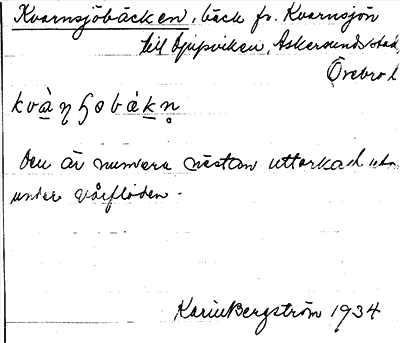 Kvarnsjöbäcken, bäck fr. Kvarnsjön
till Djupviken, Askersunds stad,
Örebro l
kvàɳʂobákn̥
Den är numera nästan uttorkad utom
under vårfloden.
Karin Bergström 1934